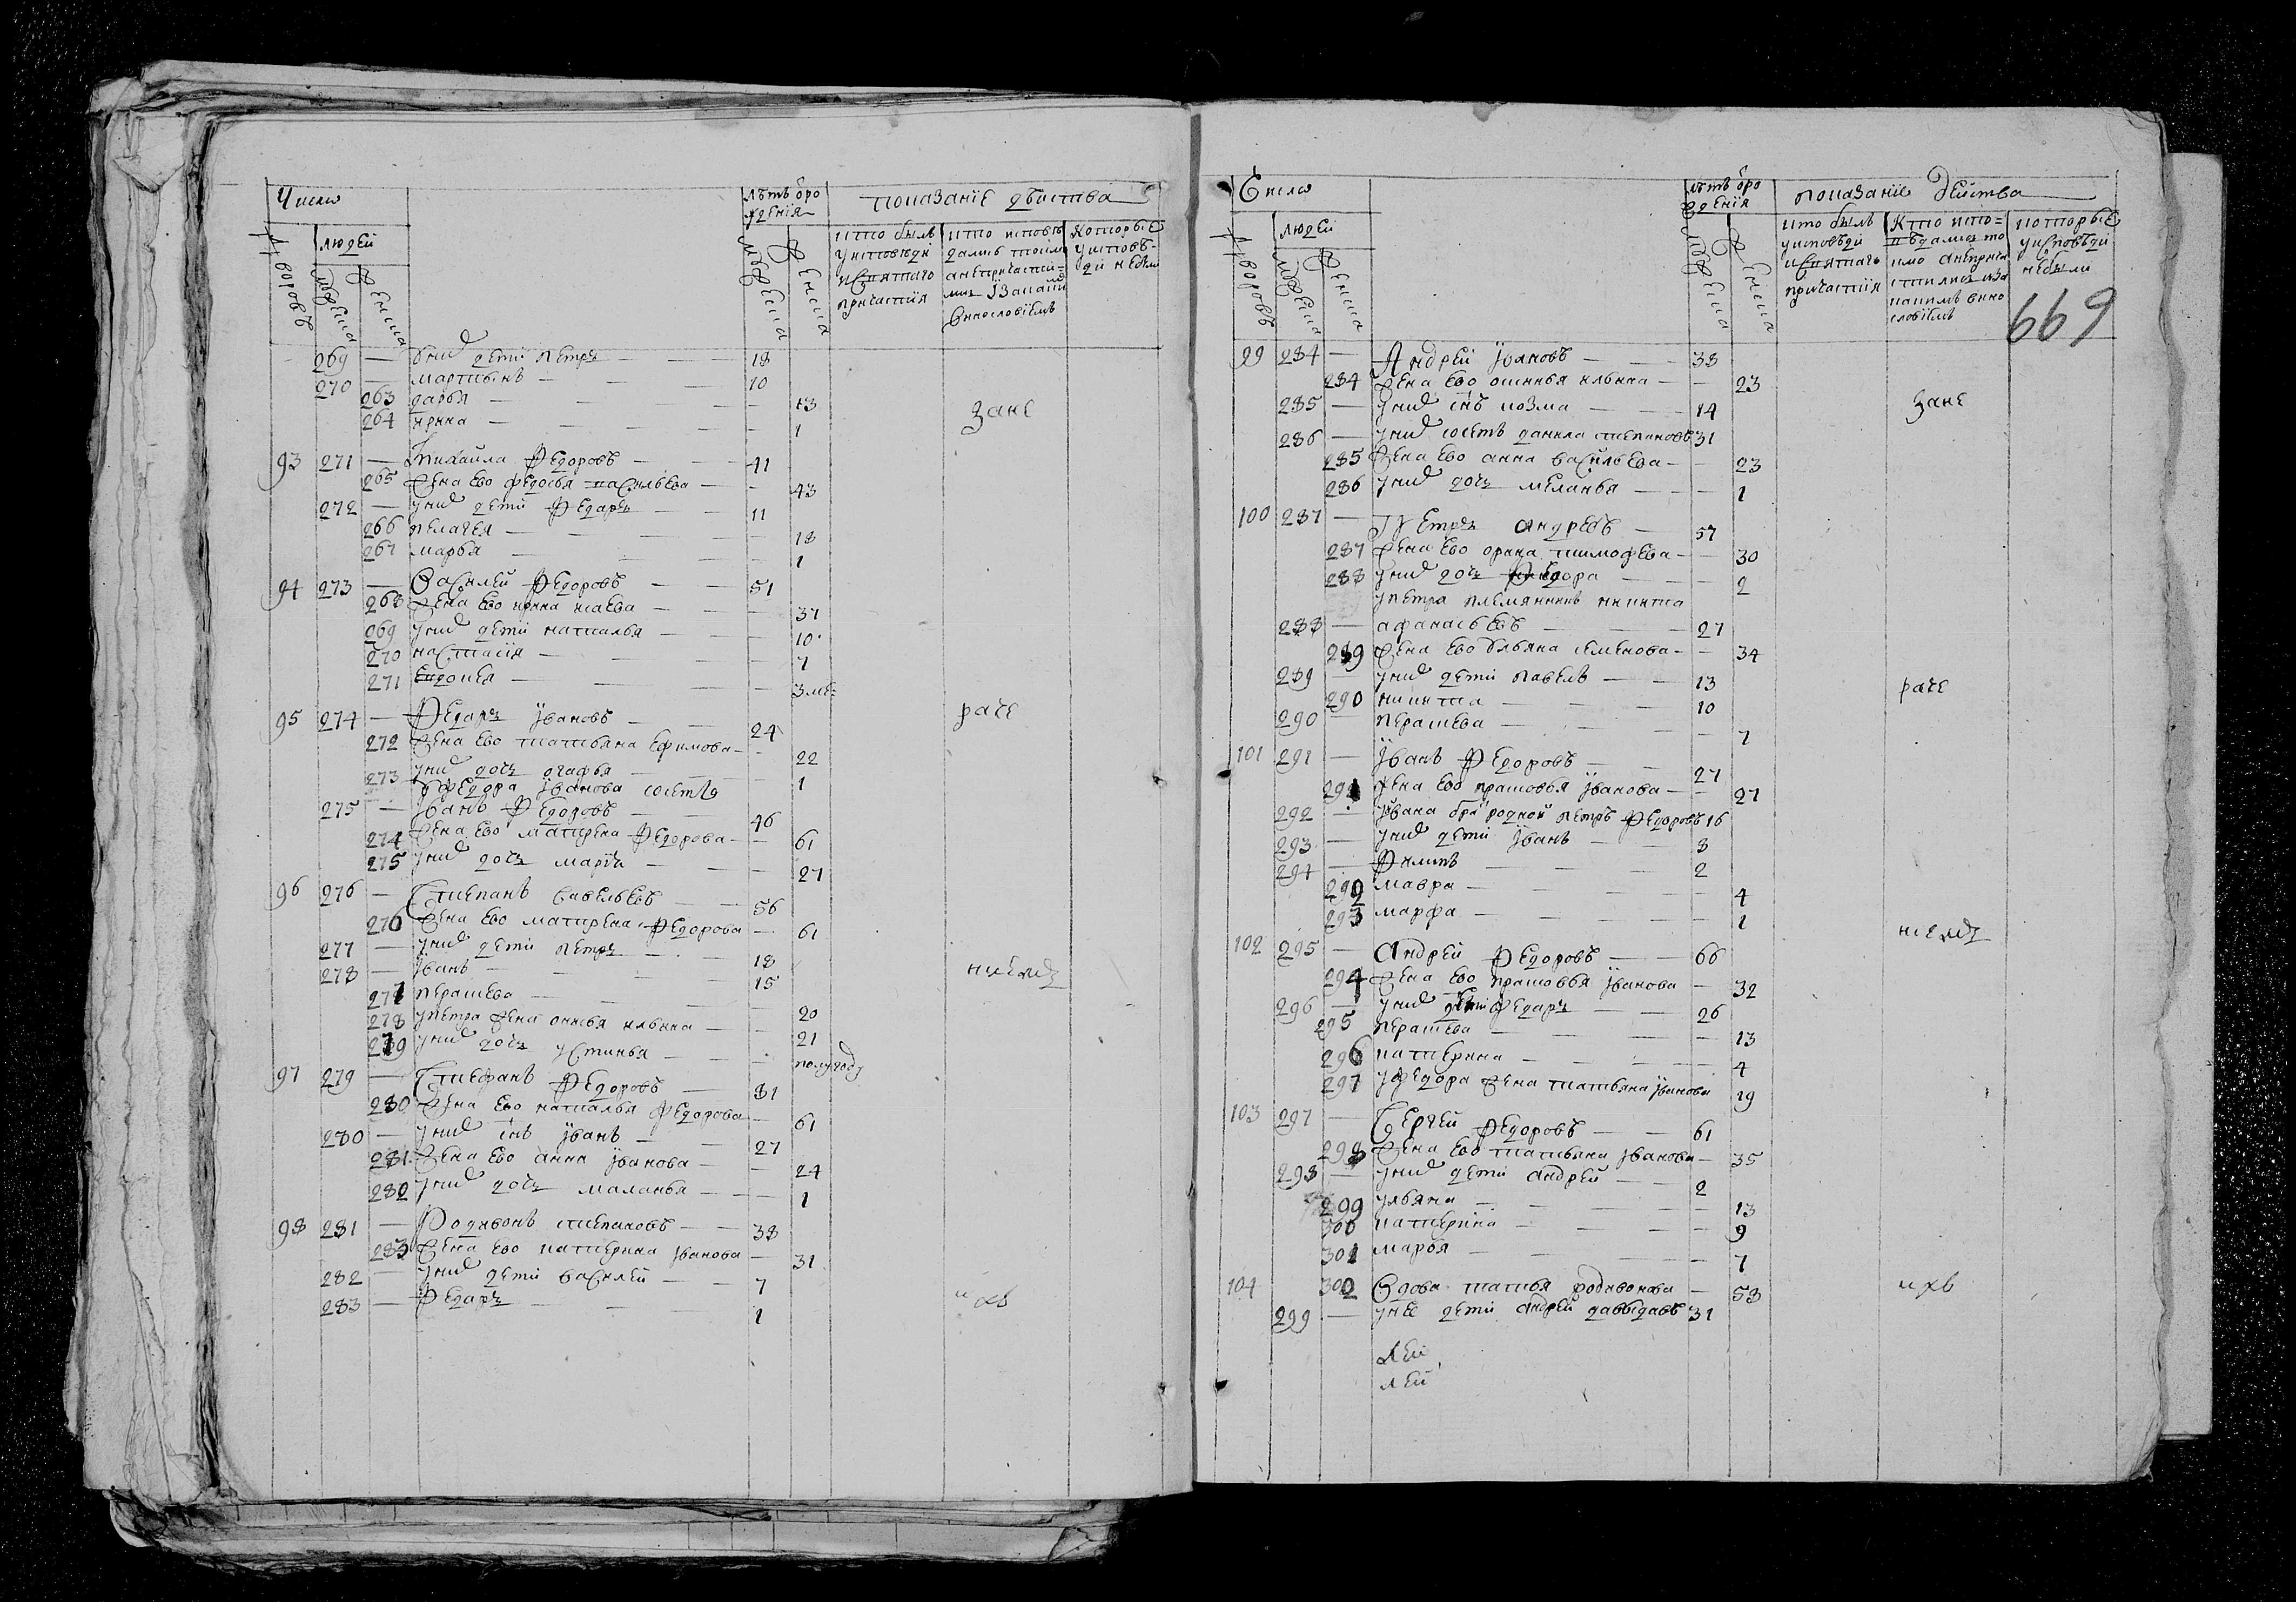 Число
лѣтъ от ро
ждения
показание действа
дворовъ
людей
мужеска
женска
мужеска
женска
кто былъ
у исповеди
и святаго
причастия
кто испове
дались токмо
а не причасти=
лись
которые
у исповѣ-
ди не были
269 — у них дети петръ — 18
270 — мартынъ — 10
263 дарья — 13
264 ирина — 1
зане
93 271 — Михайла Федоровъ — 41
265 жена ево федосья васильева — 43
272 — у них дети Федаръ — 11
266 пелагея — 18
267 марья — 1
94 273 — Василей Федоровъ — 51
268 жена ево ирина исаева — 37
269 у них дети наталья — 10
270 настасия — 7
271 евдокея — 3 ме=
95 274 — Федаръ Ивановъ — 24
раче
272 жена ево татьяна Ефимова — 22
273 у них дочь агафья — 1
у федора Иванова
275 — Иванъ Федоровъ — 46
274 жена ево матрена Федорова — 61
275 у них дочь марья — 27
96 276 — Степанъ савельевъ — 56
276 жена ево матрена Федорова — 61
277 — у них дети петръ — 18
278 — Иванъ — 15
277 перасева — 20
278 у петра жена ильина — 21
279 у них дочь устинья — полугоду
97 279 — Стефанъ Федоровъ — 81
280 жена ево наталья Федорова — 61
280 — у них снъ Иванъ — 27
281 жена ево анна Иванова — 24
282 у них дочь маланья — 1
98 281 — Родивонъ степановъ — 38
283 жена ево катерина Иванова — 31
282 — у них дети василей — 7
283 — Федаръ — 1
ихъ
Число
лѣтъ от ро
ждения
показание действа
дворовъ
людей
мужеска
женска
мужеска
женска
кто былъ
у исповѣди
и святаго
причастия
Кто испо=
вѣдались то
кмо а неприча
стились
которые
у исповѣди
небыли
669
99 284 — Андрей Ивановъ — 38
284 жена ево ильина — 23
285 — у них снъ козма — 14
зане
286 — у них данила степановъ 31
285 жена ево анна васильева — 23
286 у них дочь меланья — 1
100 287 — Петръ андреевъ — 57
287 жена ево орина тимофева — 30
288 у них дочь Федора — 2
у петра племянникъ никита
288 — афанасьевъ — 27
289 жена ево ульяна семенова — 34
289 — у них дети павелъ — 13
раче
290 никита — 10
290 — перасева — 7
101 291 — Иванъ Федоровъ — 27
291 жена ево прасковья Иванова — 27
292 — Ивана бра родной петръ Федоровъ 16
293 — у них дети Иванъ — 8
294 — Филипъ — 2
292 мавра — 4
293 марфа — 1
102 295 — Андрей Федоровъ — 66
294 жена ево прасковья Иванова — 32
296 — у них дети Федаръ — 26
295 перасева — 13
296 катерина — 4
297 у Федора жена татьяна Иванова 19
103 297 — Сергей Федоровъ — 61
298 жена ево татьяна Иванова — 35
298 — у них дети андрей — 2
299 ульяна — 13
300 катерина — 9
301 марья — 7
104 302 Вдова родивонова — 58
ихъ
299 — у нее дети андрей давыдавъ 31
лей
лей